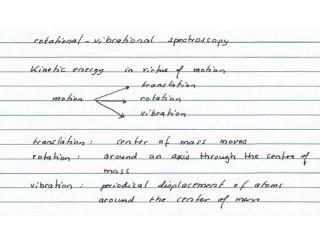 rotational-vibrational spectroscopy
Kinetic energy in virtue of motion
translation
motion rotation
vibration
translation: center of mass moves
rotation: around an axis through the centre of
mass
vibration: periodical displacement of atoms
around the center of mass